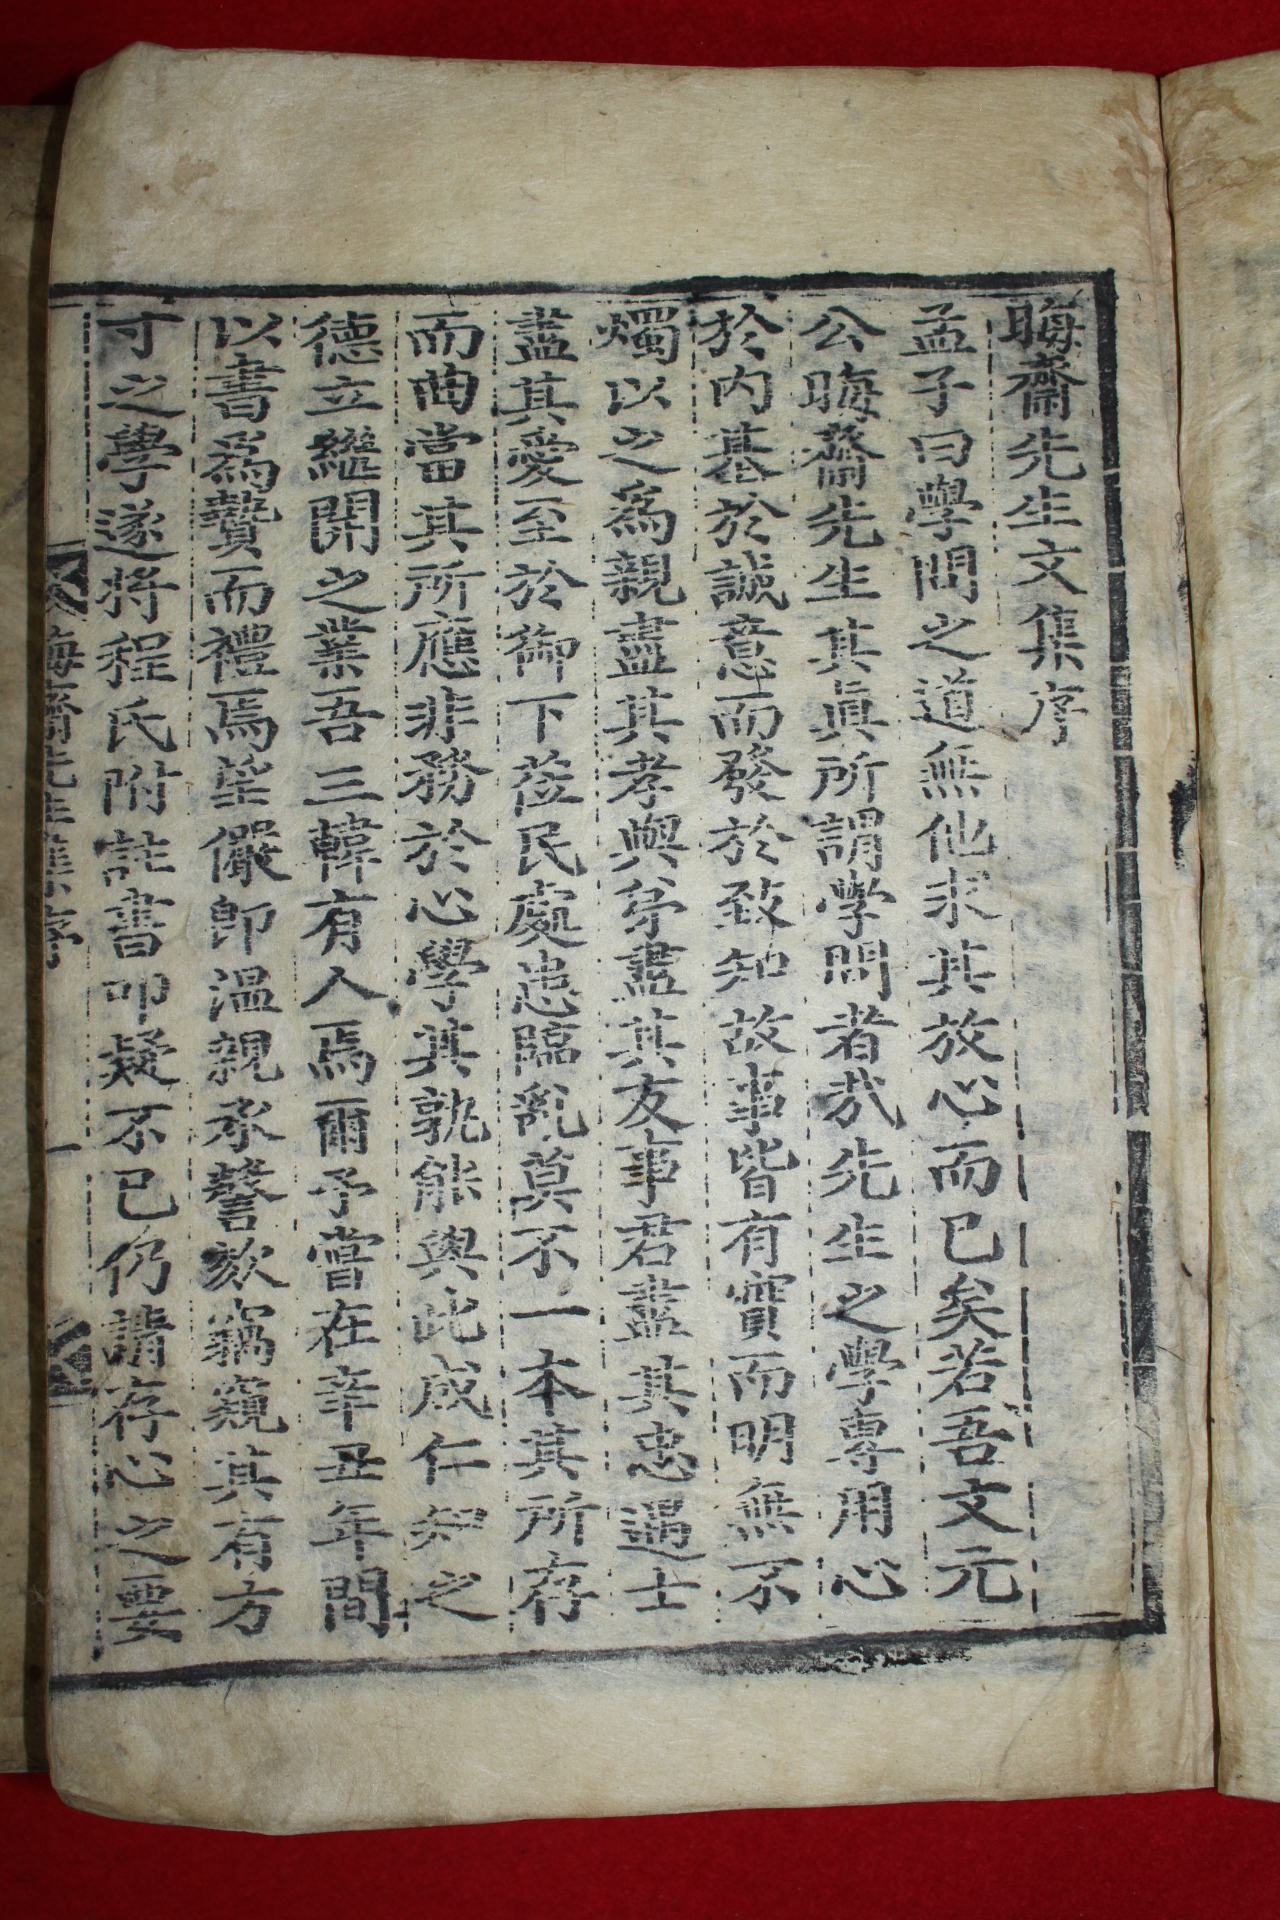 晦齋先生文集序
孟子曰學問之道無他求其放心而已矣若吾文元
公晦齋先生其眞所謂學問者㢤先生之學專用心
於內基於誠意而發於致知故事皆有實而明無不
燭以之爲親盡其孝與弟盡其友事君盡其忠遇士
盡其愛至於御下莅民處患臨亂莫不一本其所存
而曲當其所應非務於心學其孰能與此成仁知之
德立継開之業吾三韓有人焉爾予嘗在辛丑年間
以書爲贄而禮焉望儼卽溫親承謦欬竊窺其有方
寸之學遂將程氏附註書叩疑不已仍請存心之要
晦齋先生集序 一